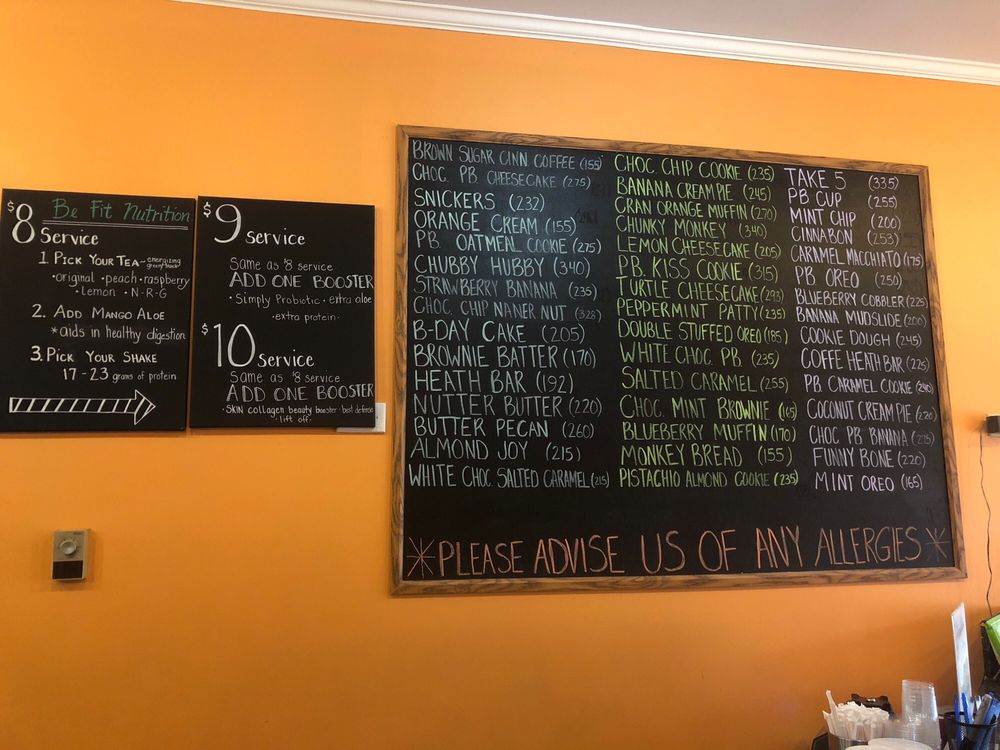 $8 Be Fit Nutrition
Service
1. PICK YOUR TEA~ energizing
•original •peach •raspberry
•Lemon •N-R-G
2. ADD MANGO ALOE
*aids in healthy digestion
3. PICK YOUR SHAKE
17-23 grams of protein
$9 service
Same as $8 service
ADD ONE BOOSTER
•Simply Probiotic •extra aloe
•extra protein•
$10 Service
Same as $8 service
ADD ONE BOOSTER
•SKIN collagen beauty booster •best defense
•lift off•
BROWN SUGAR CINN COFFEE (155)
CHOC. PB CHEESECAKE (275)
SNICKERS (232)
ORANGE CREAM (155)
PB. OATMEAL COOKIE (275)
CHUBBY HUBBY (340)
STRAWBERRY BANANA (235)
CHOC. CHIP NANER NUT (328)
B-DAY CAKE (205)
BROWNIE BATTER (170)
HEATH BAR (192)
NUTTER BUTTER (220)
BUTTER PECAN (260)
ALMOND JOY (215)
WHITE CHOC. SALTED CARAMEL (215)
CHOC. CHIP COOKIE (235)
BANANA CREAM PIE (245)
CRAN ORANGE MUFFIN (270)
CHUNKY MONKEY (340)
LEMON CHEESECAKE (205)
PB. KISS COOKIE (315)
TURTLE CHEESECAKE (293)
PEPPERMINT PATTY (235)
DOUBLE STUFFED OREO (185)
WHITE CHOC. PB. (235)
SALTED CARAMEL (255)
CHOC. MINT BROWNIE (165)
BLUEBERRY MUFFIN (170)
MONKEY BREAD (155)
PISTACHIO ALMOND COOKIE (235)
TAKE 5 (335)
PB CUP (255)
MINT CHIP (200)
CINNABON (253)
CARAMEL MACCHIATO (175)
PB. OREO (250)
BLUEBERRY COBBLER (225)
BANANA MUDSLIDE (200)
COOKIE DOUGH (245)
COFFE HEATH BAR (225)
PB CARAMEL COOKIE
COCONUT CREAM PIE (220)
CHOC PB BANANA (275)
FUNNY BONE (220)
MINT OREO (165)
*PLEASE ADVISE US OF ANY ALLERGIES*